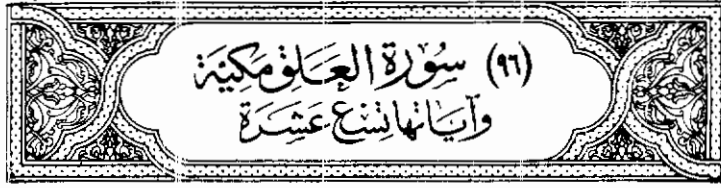 (٩٦) سُورَة العَلق مَكيَّة
وَآيَاتهَا تِسْع عَشَرَة